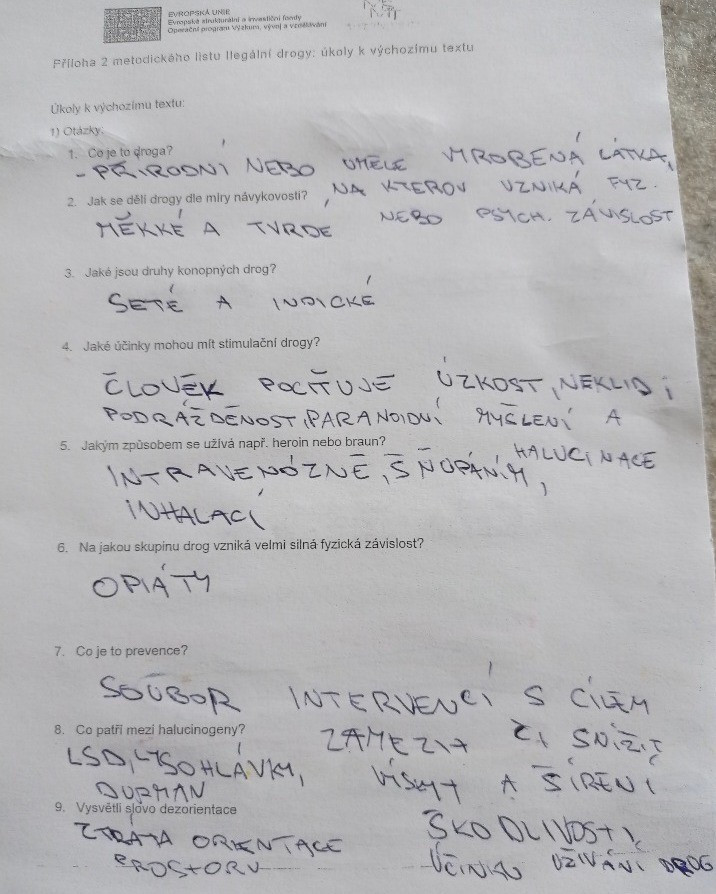 EVROPSKÁ UNIE
Evropské strukturální a investiční fondy
Operační program Výzkum, vývoj a vzdělávání
Příloha 2 metodického listu Ilegální drogy: úkoly k výchozímu textu
Úkoly k výchozímu textu:
1) Otázky:
1. Co je to droga?
- PŘÍRODNÍ NEBO UMĚLE VYROBENÁ LÁTKA,
NA KTEROU VZNIKÁ FYZ.
NEBO PSYCH. ZÁVISLOST
2. Jak se dělí drogy dle míry návykovosti?
MĚKKÉ A TVRDÉ
3. Jaké jsou druhy konopných drog?
SETÉ A INDICKÉ
4. Jaké účinky mohou mít stimulační drogy?
ČLOVĚK POCIŤUJE ÚZKOST, NEKLID,
PODRÁŽDĚNOST, PARANOIDNÍ MYŠLENÍ A
HALUCINACE
5. Jakým způsobem se užívá např. heroin nebo braun?
INTRAVENÓZNĚ, ŠŇUPÁNÍM,
INHALACÍ
6. Na jakou skupinu drog vzniká velmi silná fyzická závislost?
OPIÁTY
7. Co je to prevence?
SOUBOR INTERVENCÍ S CÍLEM
ZAMEZIT ČI SNÍŽIT
VÝSKYT A ŠÍŘENÍ
ŠKODLIVOSTI,
ÚČINKU UŽÍVÁNÍ DROG
8. Co patří mezi halucinogeny?
LSD, LYSOHLÁVKY,
DURMAN
9. Vysvětli slovo dezorientace
ZTRÁTA ORIENTACE
PROSTORU